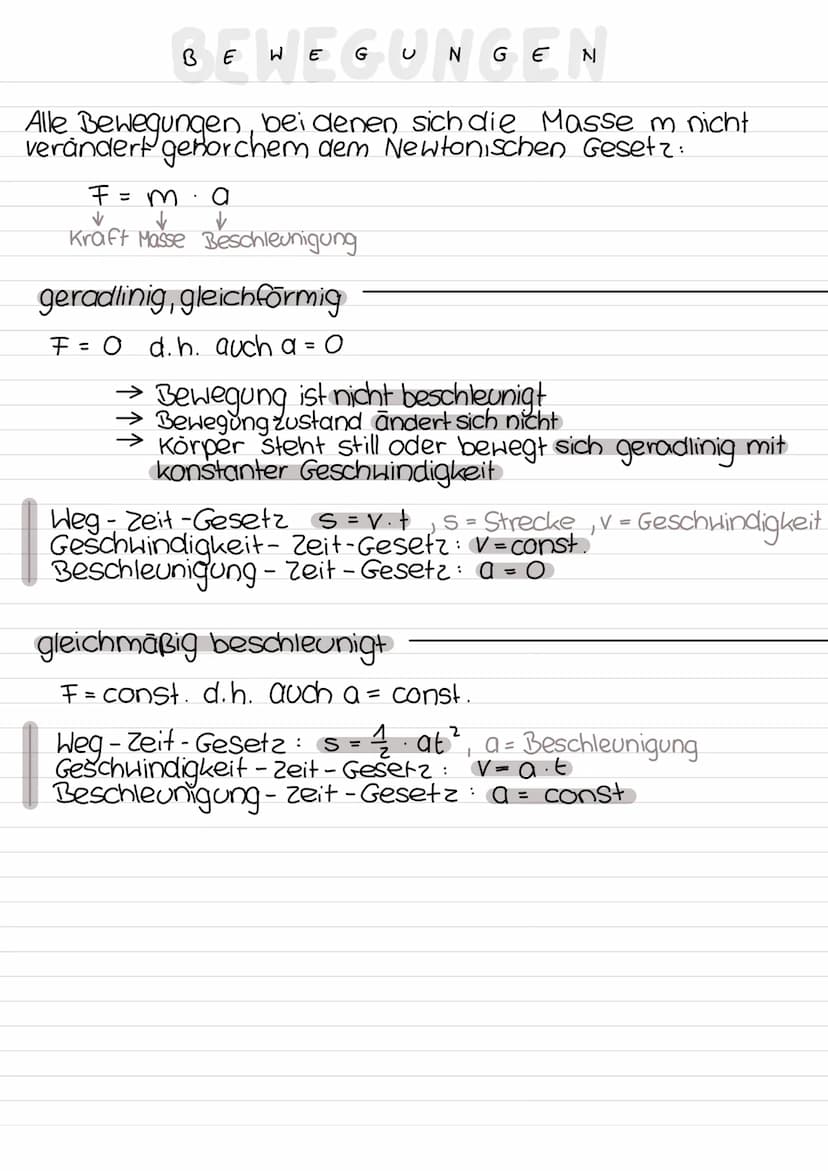 BEWEGUNGEN
B E W E G U N G E N
Alle Bewegungen, bei denen sich die Masse m nicht
verändert gehorchem dem Newtonischen Gesetz:
F = m · a
↓ ↓ ↓
Kraft Masse Beschleunigung
geradlinig, gleichförmig
F = 0 d.h. auch a = 0
→ Bewegung ist nicht beschleunigt
→ Bewegungzustand ändert sich nicht
→ Körper steht still oder bewegt sich geradlinig mit
konstanter Geschwindigkeit
Weg - Zeit - Gesetz s = v · t , s = Strecke , v = Geschwindigkeit
Geschwindigkeit - Zeit - Gesetz : v = const.
Beschleunigung - Zeit - Gesetz : a = 0
gleichmäßig beschleunigt
F = const. d.h. auch a = const.
Weg - Zeit - Gesetz : s = 1/2 · at², a = Beschleunigung
Geschwindigkeit - Zeit - Gesetz : v = a · t
Beschleunigung - Zeit - Gesetz : a = const